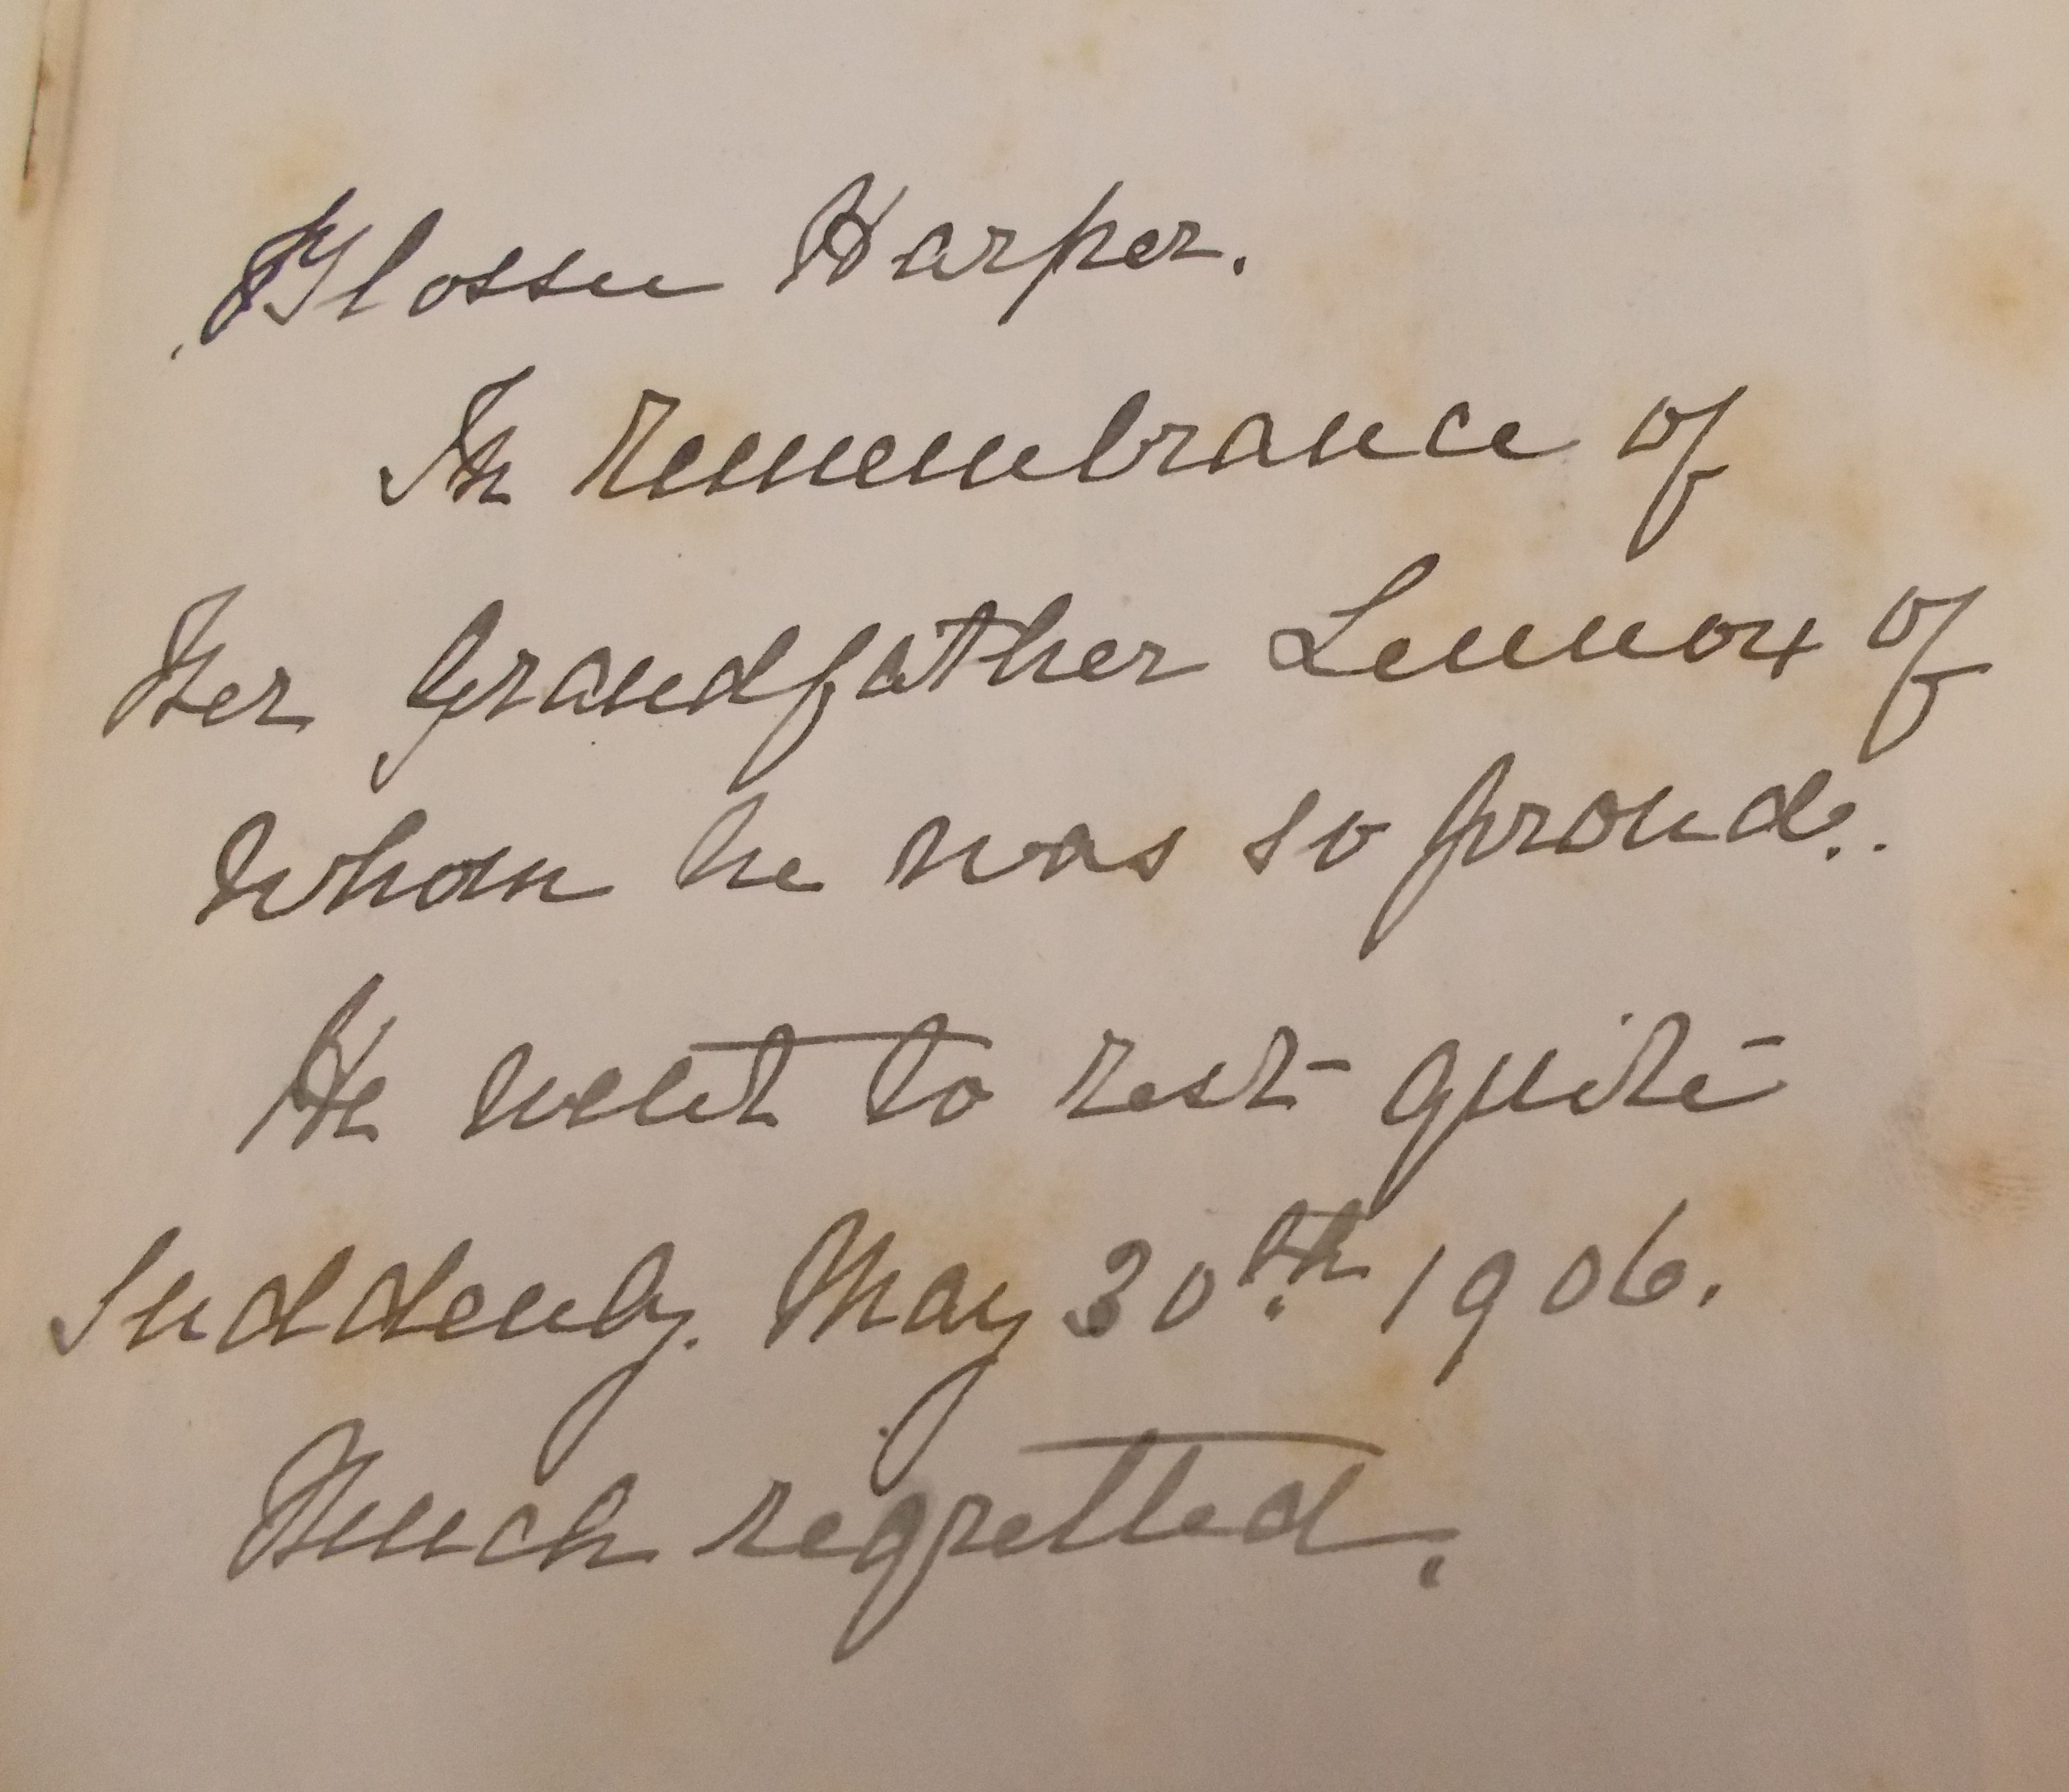 Flossie Harper.
In remembrance of
Her Grandfather Lennox of
Whom he was so proud..
He went to rest quite
Suddenly. May 30th. 1906.
Much regretted.